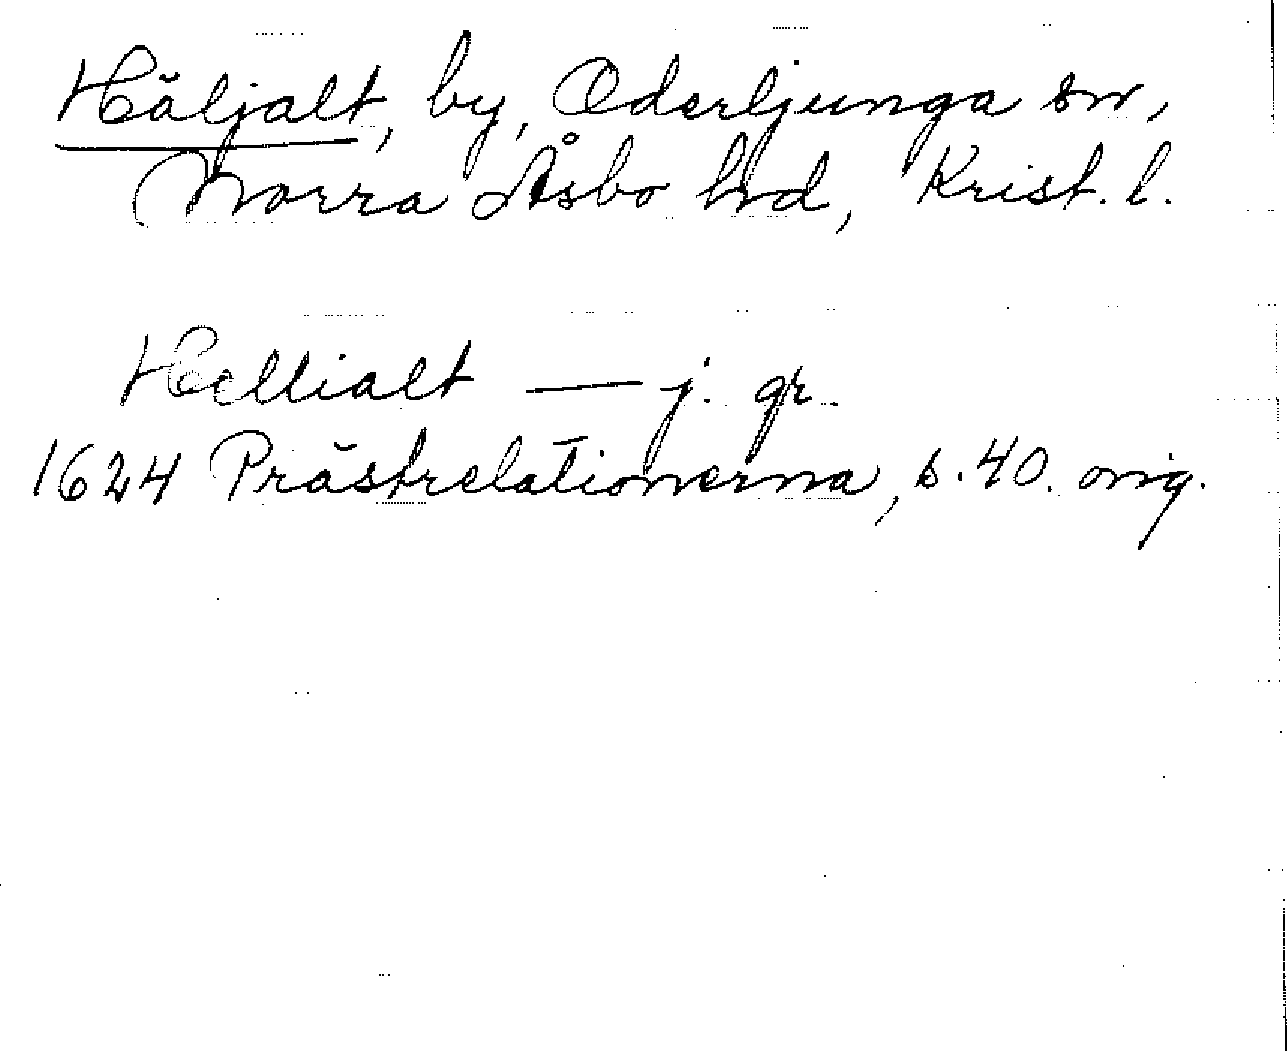 Häljalt, by, Oderljunga sn,
Norra Åsbo hd, Krist. l.
Hellialt — j. gr.
1624 Prästrelationerna, s. 40. orig.